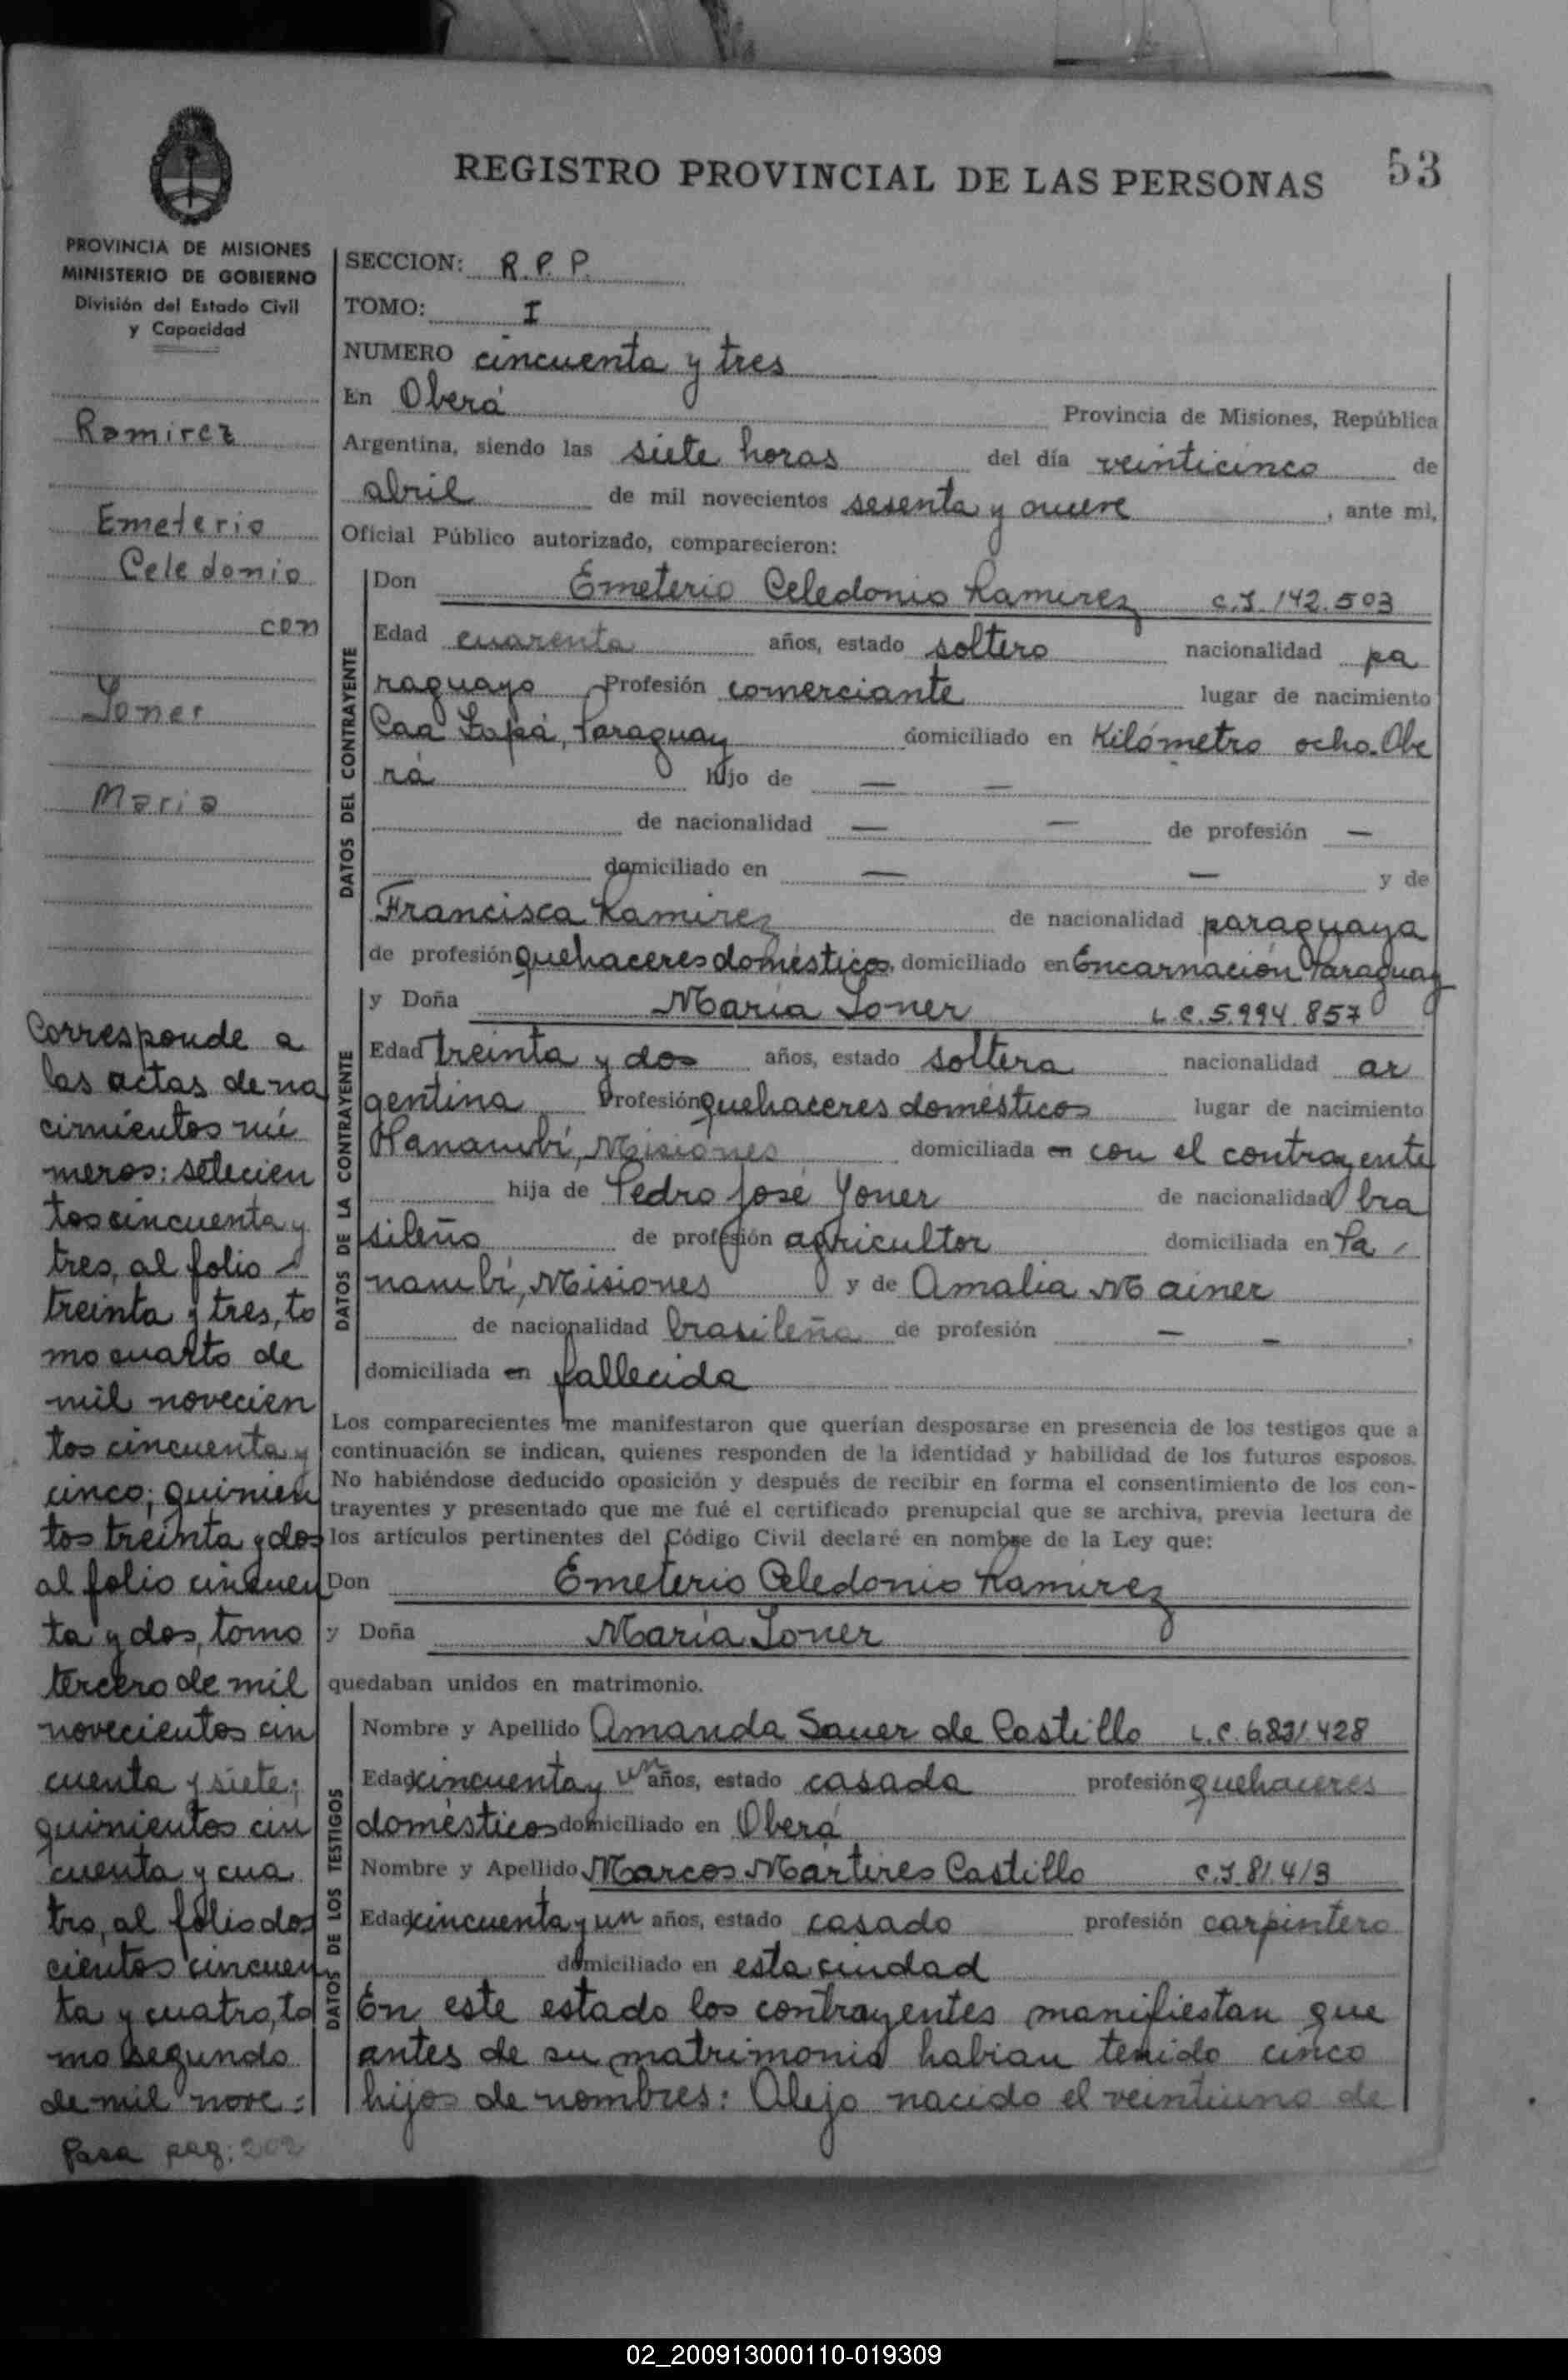 REGISTRO PROVINCIAL DE LAS PERSONAS 53
PROVINCIA DE MISIONES
MINISTERIO DE GOBIERNO
División del Estado Civil
y Capacidad
Ramirez
Emeterio
Celedonio
con
Yoner
Maria
Corresponde a
las actas de na
cimientos nú
meros: setecien
tos cincuenta y
tres, al folio
treinta y tres, to
mo cuarto de
mil novecien
tos cincuenta y
cinco; quinien
tos treinta y dos
al folio cincuen
ta y dos, tomo
tercero de mil
novecientos cin
cuenta y siete;
quinientos cin
cuenta y cua
tro, al folio dos
cientos cincuen
ta y cuatro, to
mo segundo
de mil nove=
Pasa pag: 202
SECCION: R.P.P.
TOMO: I
NUMERO cincuenta y tres
En Oberá Provincia de Misiones, República
Argentina, siendo las siete horas del día veinticinco de
abril de mil novecientos sesenta y nueve, ante mi,
Oficial Público autorizado, comparecieron:
DATOS DEL CONTRAYENTE
Don Emeterio Celedonio Ramirez C.I. 142.503
Edad cuarenta años, estado soltero nacionalidad pa
raguayo Profesión comerciante lugar de nacimiento
Caa Zapá, Paraguay domiciliado en Kilómetro ocho. Obe
rá hijo de — —
de nacionalidad — — de profesión —
domiciliado en — — y de
Francisca Ramirez de nacionalidad paraguaya
de profesión quehaceres domésticos, domiciliado en Encarnación Paraguay
DATOS DE LA CONTRAYENTE
y Doña María Yoner L.C. 5.994.857
Edad treinta y dos años, estado soltera nacionalidad ar
gentina Profesión quehaceres domésticos lugar de nacimiento
Panambí, Misiones domiciliada en con el contrayente
hija de Pedro José Yoner de nacionalidad bra
sileño de profesión agricultor domiciliada en Pa
nambí, Misiones y de Amalia Mainer
de nacionalidad brasileña de profesión — —,
domiciliada en fallecida
Los comparecientes me manifestaron que querían desposarse en presencia de los testigos que a
continuación se indican, quienes responden de la identidad y habilidad de los futuros esposos.
No habiéndose deducido oposición y después de recibir en forma el consentimiento de los con-
trayentes y presentado que me fué el certificado prenupcial que se archiva, previa lectura de
los artículos pertinentes del Código Civil declaré en nombre de la Ley que:
Don Emeterio Celedonio Ramirez
y Doña María Yoner
quedaban unidos en matrimonio.
DATOS DE LOS TESTIGOS
Nombre y Apellido Amanda Sauer de Castillo L.C. 6.831.428
Edad cincuenta y un años, estado casada profesión quehaceres
domésticos domiciliado en Oberá
Nombre y Apellido Marcos Mártires Castillo C.I. 81.413
Edad cincuenta y un años, estado casado profesión carpintero
domiciliado en esta ciudad
En este estado los contrayentes manifiestan que
antes de su matrimonio habian tenido cinco
hijos de nombres: Alejo nacido el veintiuno de
02_200913000110-019309